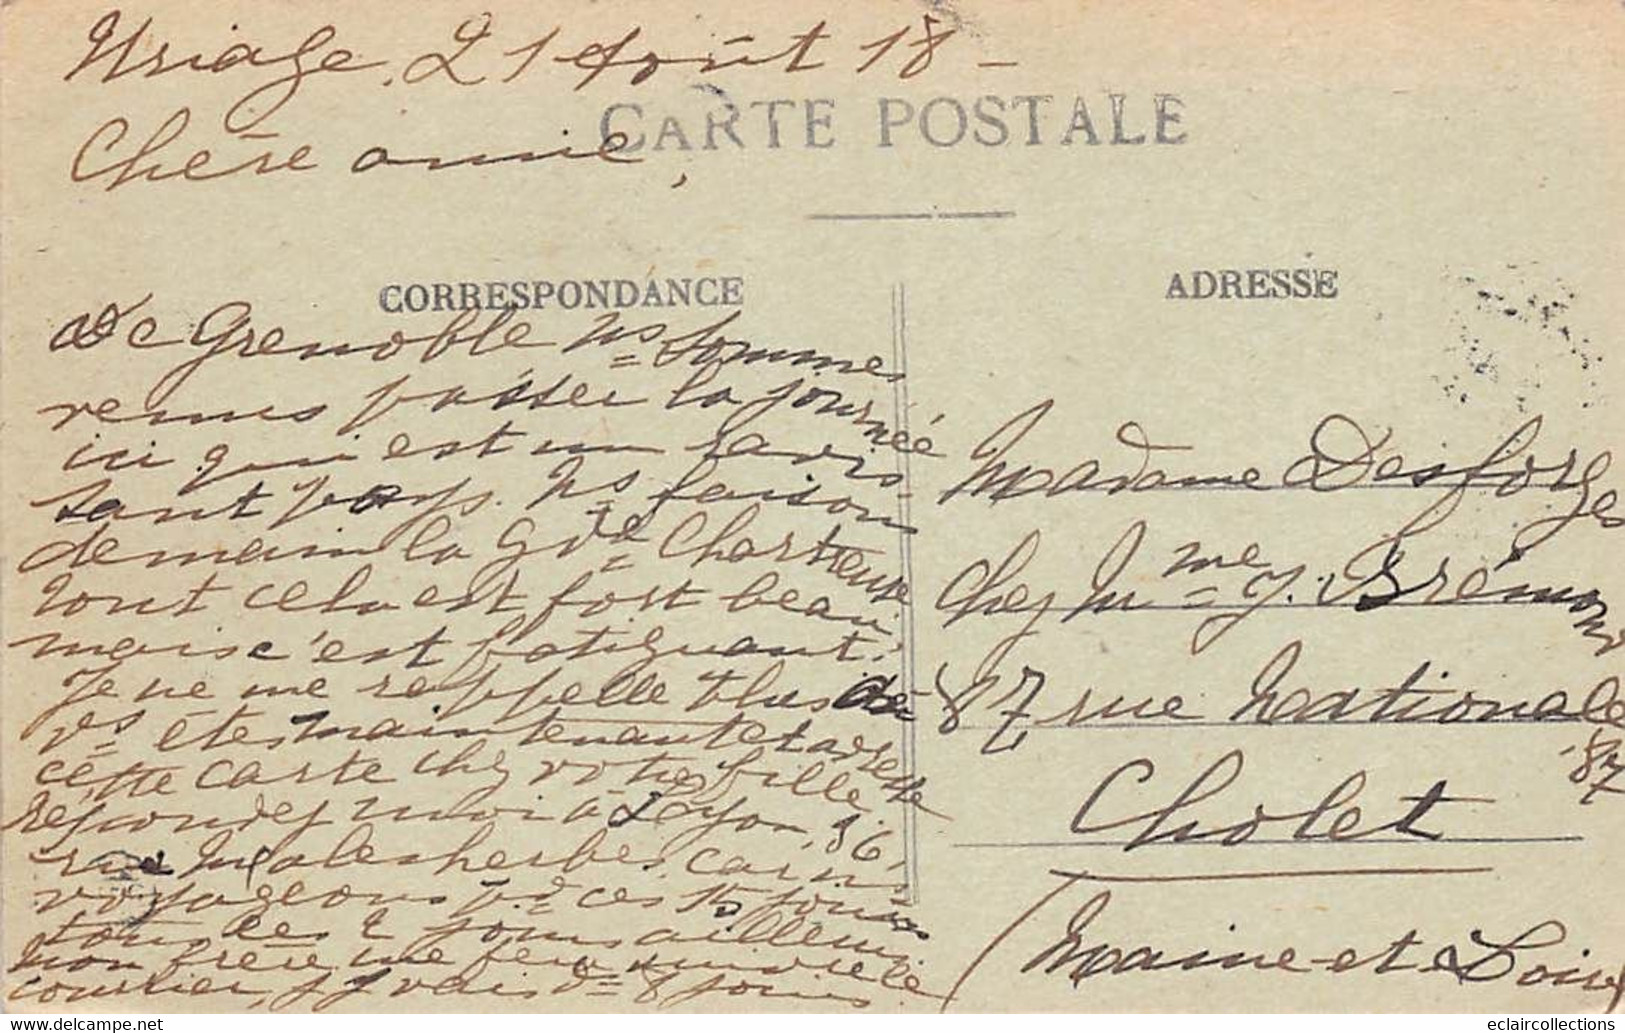 Uriage, 21 Août 18 -
CARTE POSTALE
Chère amie,
CORRESPONDANCE
De Grenoble ns sommes
venus passer la journée
ici qui est un ravis-
sant pays. Ns faisons
demain la Gde Chartreuse
tout cela est fort beau
mais c'est fatiguant.
Je ne me rappelle plus
vs êtes maintenant et adresse
cette carte chez votre fille,
répondez moi à Lyon, 36,
rue Malesherbes, car ns
voyageons pd ces 15 jours
tous les 2 jours ailleurs
mon frère me fera suivre le
courrier, jy vais ds 8 jours
ADRESSE
Madame Desforges
chez Mme J. Brémond
87 rue Nationale
87
Cholet
(Maine-et-Loire)
eclaircollections
www.delcampe.net